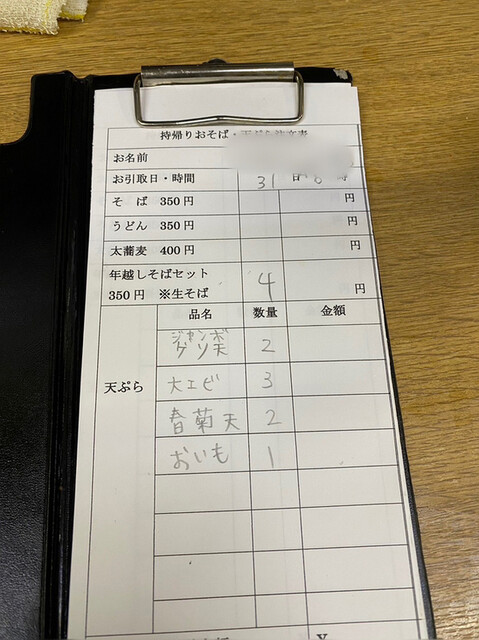 持帰りおそば・天ぷら注文表
お名前
お引取日・時間 31 日
そ ば 350円 円
うどん 350円 円
太蕎麦 400円 円
年越しそばセット
350円 ※生そば 4 円
天ぷら 品名 数量 金額
ジャンボ
ゲソ天 2
大エビ 3
春菊天 2
おいも 1
¥